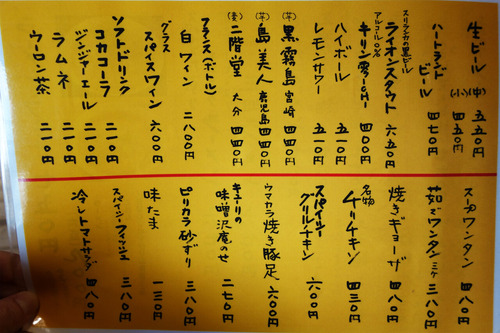 生ビール(中) 五五〇円
(小) 四五〇円
ハートランドビール 四七〇円
スリランカの黒ビール
ライオンスタウト 六五〇円
アルコール0%
キリン零ICHI 四〇〇円
ハイボール 五一〇円
レモンサワー 五一〇円
(芋) 黒霧島 宮崎 四四〇円
(芋) 島美人 鹿児島 四四〇円
(麦) 二階堂 大分 四四〇円
フランス(ボトル)
白ワイン 二八〇〇円
グラス
スパイスワイン 六〇〇円
ソフトドリンク
コカコーラ 二一〇円
ジンジャーエール 二一〇円
ラムネ 二一〇円
ウーロン茶 二一〇円
スープワンタン 四八〇円
茹でワンタン ミヤ 三八〇円
焼きギョーザ 四八〇円
名物
チリチキン 四三〇円
スパイシーグリルチキン 六〇〇円
ウマカラ焼き豚足 六〇〇円
キュウリの味噌沢庵のせ 二七〇円
ピリカラ砂ずり 三八〇円
味たま 一三〇円
スパイシーフィッシュ 三八〇円
冷しトマトサラダ 四八〇円